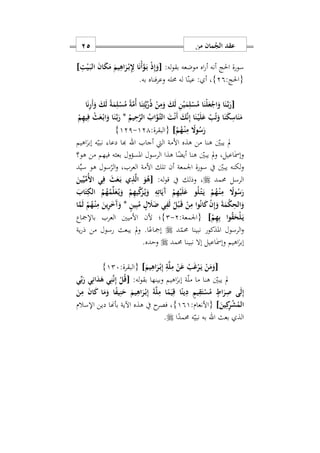 عقد الجُمان من
٢٥
سورة الحج أنه أراه موضعه بقوله: [وَإِذْ بَوَّأْنَا لِإِبْرَاهِيمَ مَكَانَ الْبَيْتِ]
{الحج:٢٦}، أي: عينَّا له محله وعرفناه به.
[رَبَّنَا وَاجْعَلْنَا مُسْلِمَيْنِ لَكَ وَمِنْ ذُرِّيَّتِنَا أُمَّةً مُسْلِمَةً لَكَ وَأَرِنَا
مَنَاسِكَنَا وَتُبْ عَلَيْنَا إِنَّكَ أَنْتَ التَّوَّابُ الرَّحِيمُ * رَبَّنَا وَابْعَثْ فِيهِمْ
رَسُولًا مِنْهُمْ] {البقرة:١٢٨-١٢٩}
لم يبيّن هنا من هذه الأمة التي أجاب الله بها دعاء نبيّه إبراهيم
وإسماعيل، ولم يبيّن هنا أيضًا هذا الرسول المسؤول بعثه فيهم من هو؟
ولكنه يبيّن في سورة الجمعة أن تلك الأمة العرب، والرّسول هو سيّد
الرسل محمد ﷺ، وذلك في قوله: [هُوَ الَّذِي بَعَثَ فِي الْأُمِّيِّينَ
رَسُولًا مِنْهُمْ يَتْلُو عَلَيْهِمْ آيَاتِهِ وَيُزَكِّيهِمْ وَيُعَلِّمُهُمُ الْكِتَابَ
وَالْحِكْمَةَ وَإِنْ كَانُوا مِنْ قَبْلُ لَفِي ضَلَالٍ مُبِينٍ * وَآخَرِينَ مِنْهُمْ لَمَّا
يَلْحَقُوا بِهِمْ] {الجمعة:٢-٣}؛ لأن الأميين العرب بالإجماع
والرسول المذكور نبينا محمّد ﷺ إجماعًا. ولم يبعث رسول من ذرية
إبراهيم وإسماعيل إلا نبينا محمد ﷺ وحده.
[وَمَنْ يَرْغَبُ عَنْ مِلَّةِ إِبْرَاهِيمَ] {البقرة:١٣٠}
لم يبيّن هنا ما ملّة إبراهيم وبينها بقوله: [قُلْ إِنَّنِي هَدَانِي رَبِّي
إِلَى صِرَاطٍ مُسْتَقِيمٍ دِينًا قِيَمًا مِلَّةَ إِبْرَاهِيمَ حَنِيفًا وَمَا كَانَ مِنَ
الْمُشْرِكِينَ] {الأنعام:١٦١}، فصرح في هذه الآية بأنها دين الإسلام
الذي بعث الله به نبيّه محمدًا ﷺ.